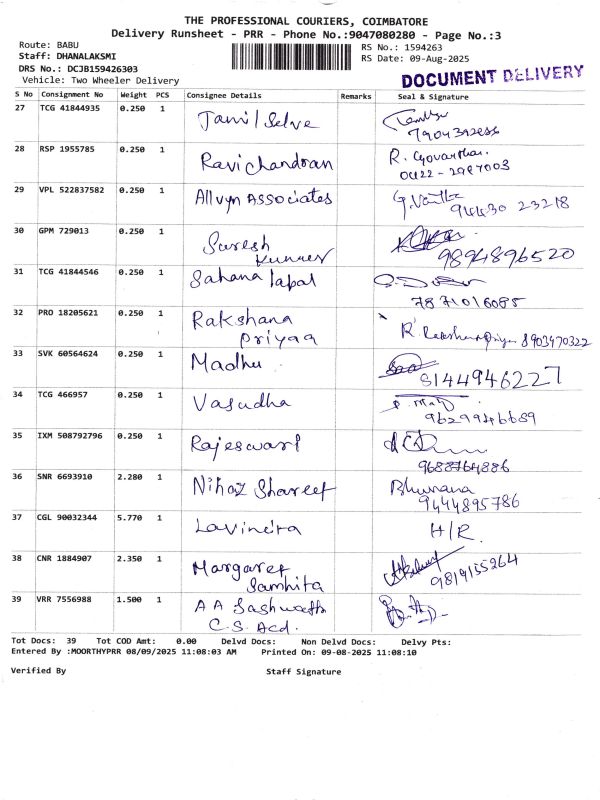 THE PROFESSIONAL COURIERS, COIMBATORE
Delivery Runsheet - PRR - Phone No.:9047080280 - Page No.:3
Route: BABU
Staff: DHANALAKSMI
DRS No.: DCJB159426303
Vehicle: Two Wheeler Delivery
RS No.: 1594263
RS Date: 09-Aug-2025
DOCUMENT DELIVERY
S No Consignment No Weight PCS Consignee Details Remarks Seal & Signature
27 TCG 41844935 0.250 1 Tamil Selve
7904392686
28 RSP 1955785 0.250 1 Ravichandran R. Govarthan.
0422-2997003
29 VPL 522837582 0.250 1 Allvyn Associates G. Vanitha
94430 23218
30 GPM 729013 0.250 1 Suresh Kumar
9894896520
31 TCG 41844546 0.250 1 Sahana Tapal
7871016085
32 PRO 18205621 0.250 1 Rakshana Priyaa R. Rakshana Priyaa 8903470322
33 SVK 60564624 0.250 1 Madhu
8144946227
34 TCG 466957 0.250 1 Vasudha
9629946689
35 IXM 508792796 0.250 1 Rajeswari
9688764886
36 SNR 6693910 2.280 1 Nihaz Shareef Bhuvana
9444895786
37 CGL 90032344 5.770 1 Lavindra H/R.
38 CNR 1884907 2.350 1 Margaret Samhita
9819155264
39 VRR 7556988 1.500 1 A A Sashwath
C.S. Acd.
Tot Docs: 39 Tot COD Amt: 0.00 Delvd Docs: Non Delvd Docs: Delvy Pts:
Entered By :MOORTHYPRR 08/09/2025 11:08:03 AM Printed On: 09-08-2025 11:08:10
Verified By Staff Signature